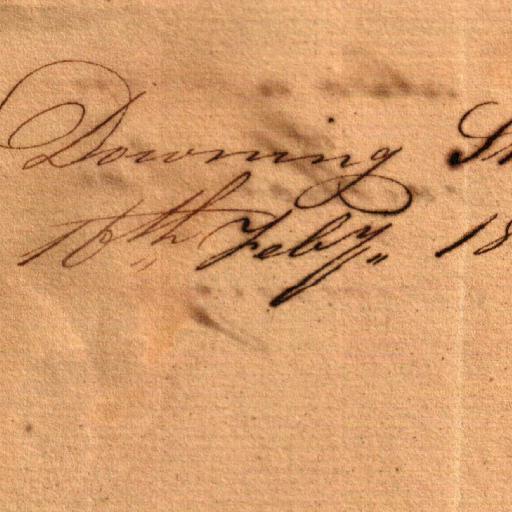 Downing St
16th Feby 18